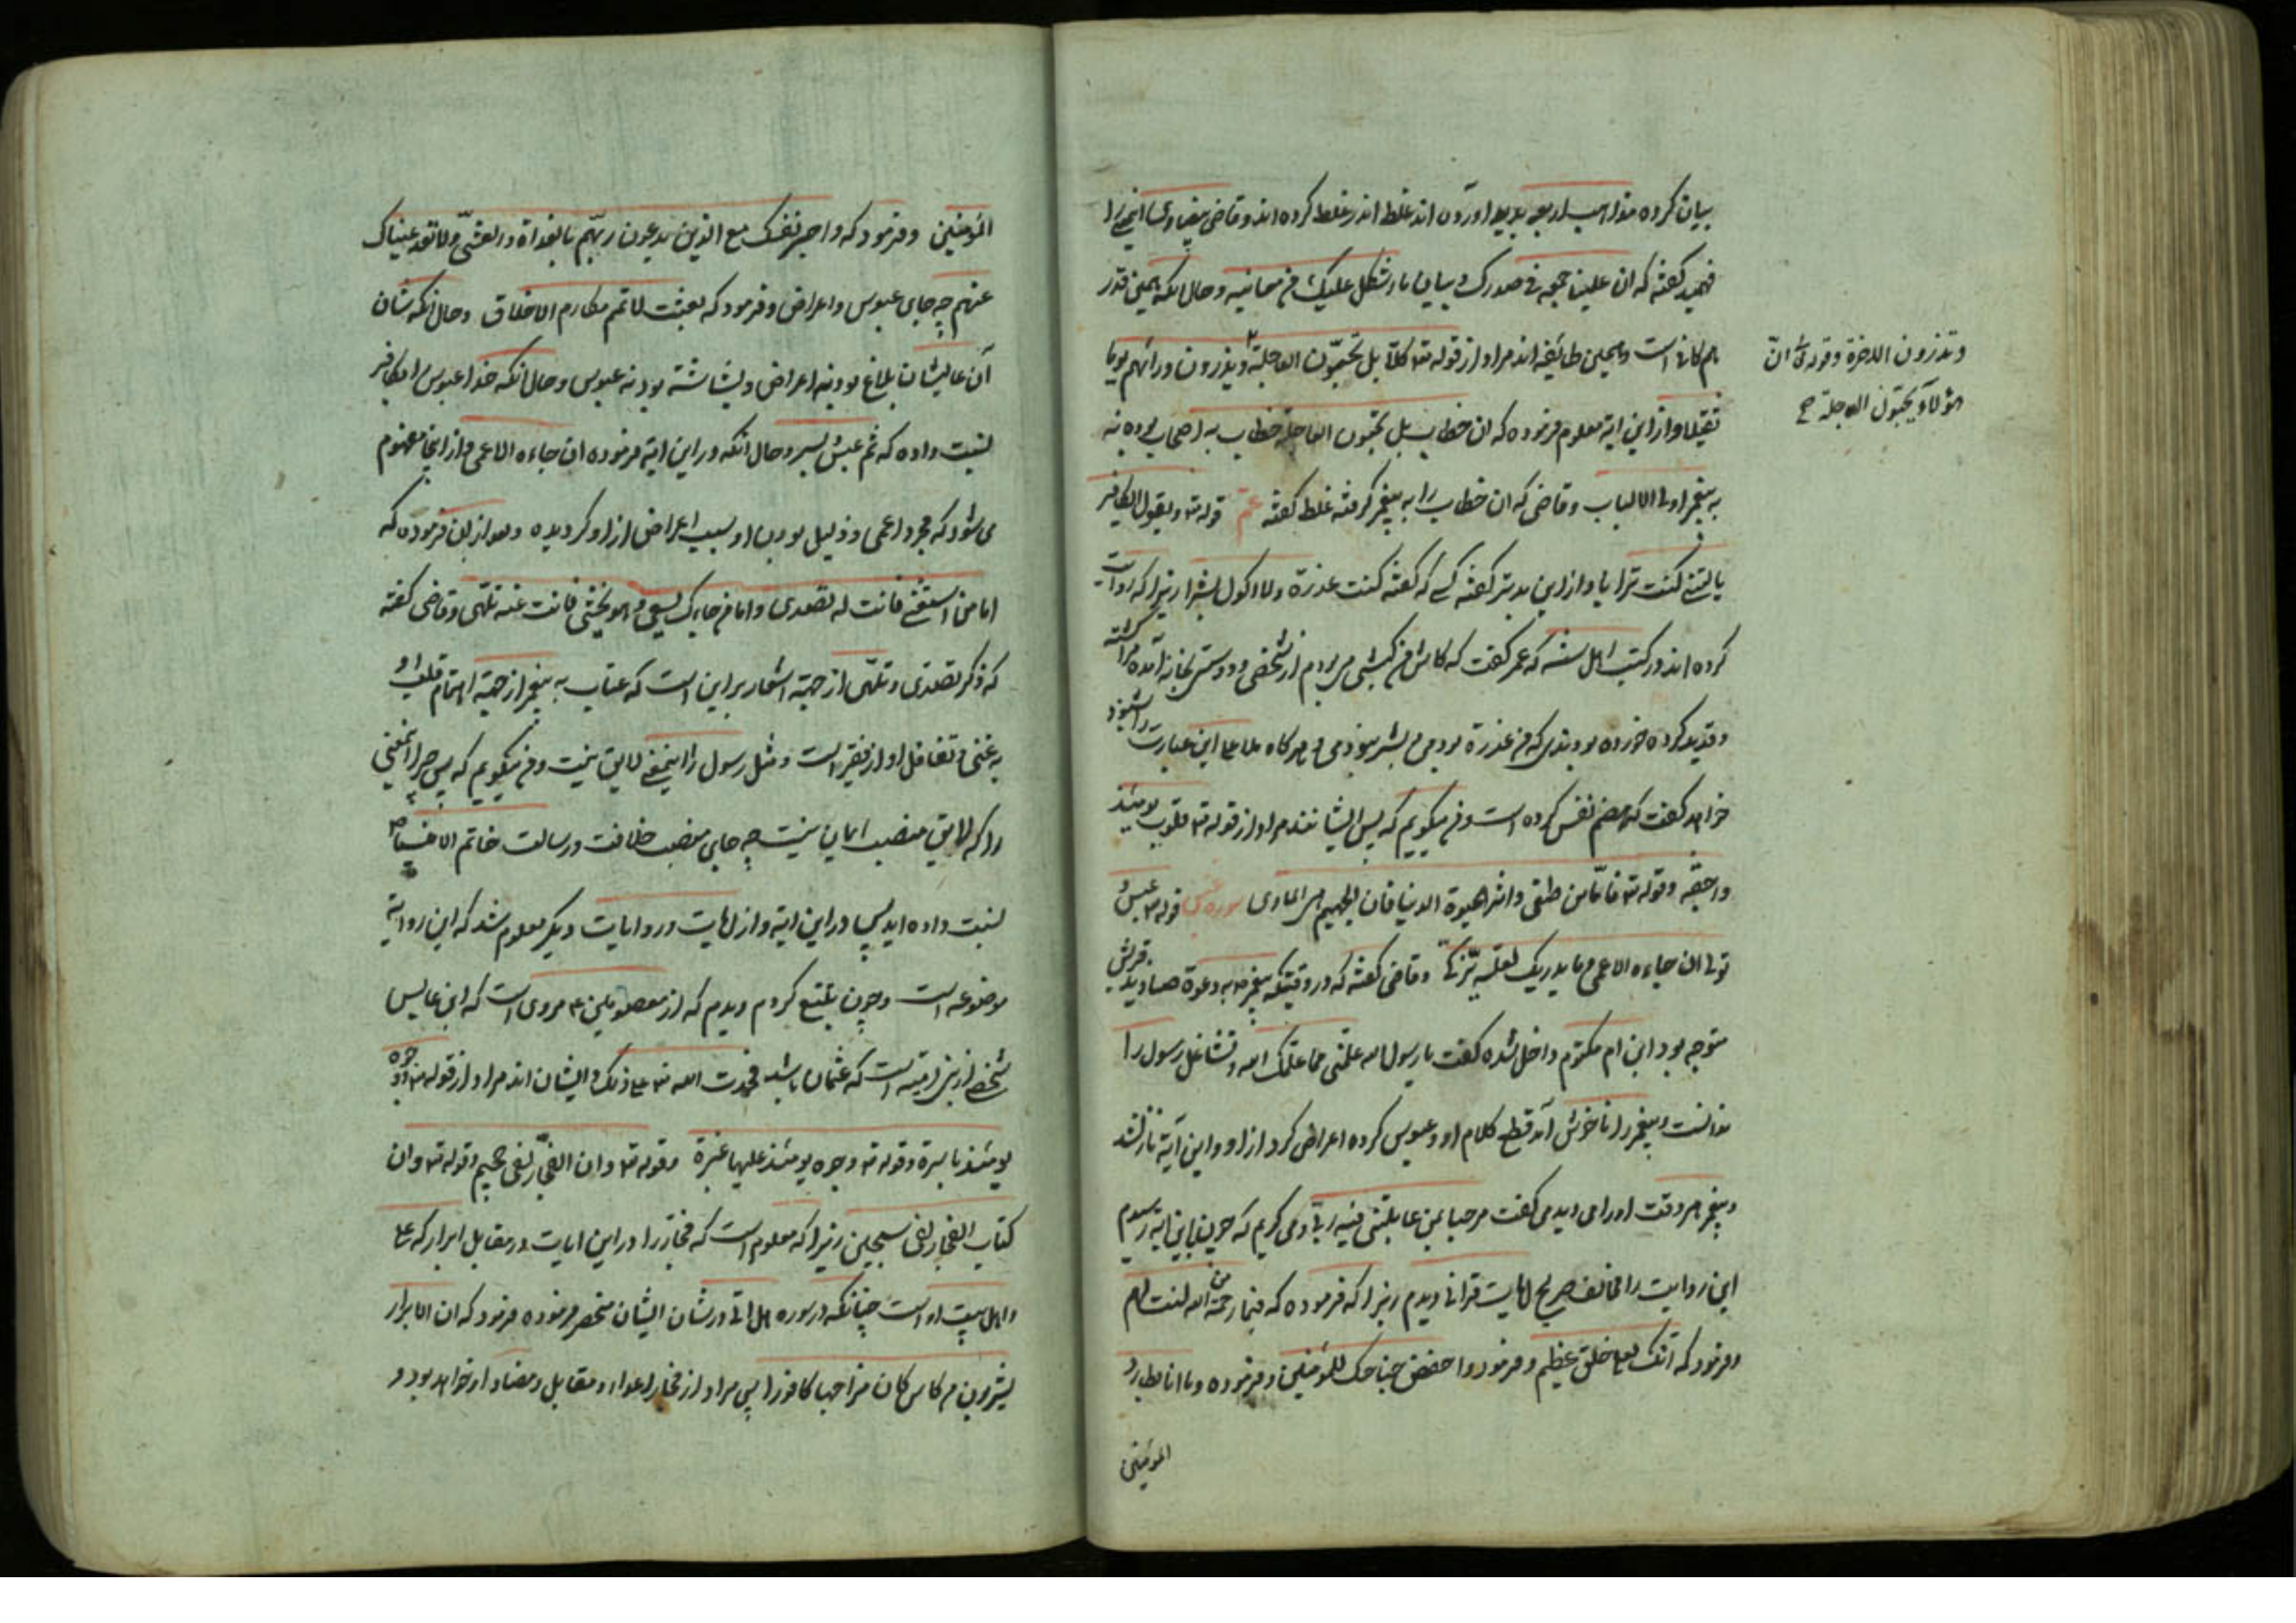 بیان کرده اند غلط اندر غلط کرده اند و قاضی بیضاوی اینجا را
فهمید کفته که ان علینا جمعه فی صدرک و بیان ما اشکل علیک من معانیه و حال انکه همین قدر
هم کافی است و همین طائفه اند مراد از قوله تع کلّا بل تحبّون العاجلة و یذرون وراءهم یوما
وتذرون الاخرة وقوله تع انّ
هؤلاء یحبّون العاجلة صح
ثقیلا و از این ایة معلوم فرموده که ان خطاب بل تحبون العاجلة خطاب به اصحاب بوده نه
به پیغمبر اولی الالباب و قاضی که ان خطاب را به پیغمبر کرفته غلط کفته عمّ قوله تع ویقول الکافر
یا لیتنی کنت ترابا و از این بدتر کفته کسی که کفته کنت عذرة ولا اکول بشرا زیرا که روایت
کرده اند در کتب اهل سنه که عمر کفت که کاش من کبشی می بودم از شخصی و دوستش بخانه امده مرا کشته
و قدید کرده خورده بودندی که من عذرة بودمی و بشر نبودمی و هرکاه ملا این عبارت را شنود
خواهد کفت که هضم نفس کرده است و من میکویم که پس ایشانند مراد از قوله تع قلوب یومئذ
واجفة وقوله تع فامّا من طغی واثر الحیوة الدنیا فان الجحیم هی الماوی سوره عبس قوله تع عبس و
تولی ان جاءه الاعمی وما یدریک لعلّه یزّکّی و قاضی کفته که در وقتیکه پیغمبر به دعوة صنادید قریش
متوجه بود ابن ام مکتوم داخل شده کفت یا رسول الله علّمنی مما علّمک الله و تشاغل رسول را
ندانست و پیغمبر را ناخوش آمد قطع کلام او و عبوس کرده اعراض کرد از او و این آیة نازل شد
و پیغمبر هر وقت او را می دید می کفت مرحبا بمن عاتبنی فیه ربّی و می کویم که چون باین ایة رسیدم
این روایت را مخالف صریح ایات قرانی دیدم زیرا که فرموده که فبما رحمة من الله لنت لهم
و فرمود که انّک لعلی خلق عظیم و فرمود واخفض جناحک للمؤمنین و فرموده وما انا بطارد
المؤمنین
المؤمنین و فرمود که واصبر نفسک مع الذین یدعون ربّهم بالغداة والعشیّ ولا تعد عیناک
عنهم چه جای عبوس و اعراض و فرمود که بعثت لاتمم مکارم الاخلاق و حال انکه شان
آن عالیشان بلاغ بود نه اعراض و بشاشة بود نه عبوس و حال انکه خدا عبوس را بکافر
نسبت داده که ثم عبس وبسر و حال انکه در این ایة فرموده ان جاءه الاعمی و از اینجا مفهوم
می شود که مجرد اعمی و ذلیل بودن او سبب اعراض از او کردیده و بعد از ان فرموده که
اما من استغنی فانت له تصدی واما من جاءک یسعی وهو یخشی فانت عنه تلهّی و قاضی کفته
که ذکر تصدی و تلهّی از جهة اشعار بر این است که عتاب به پیغمبر از جهة اهتمام قلب او
به غنی و تغافل او از فقیر است و مثل رسول را اینمعنی لایق نیست و من میکویم که پس چرا اینمعنی
را که لایق منصب ایمان نیست چه جای منصب خلافت و رسالت خاتم الانبیاء
نسبت داده اید پس در این ایة و از ایات و روایات دیکر معلوم شد که این روایة
موضوعه است و چون تتبع کردم دیدم که از معصومین ع مروی است که این عابس
شخصی از بنی امیّه است که عثمان باشد فحمدت الله تع علی ذلک و ایشان اند مراد از قوله تع وجوه
یومئذ باسرة وقوله تع وجوه یومئذ علیها غبرة وقوله تع وان الفجّار لفی جحیم وقوله تع وان
کتاب الفجار لفی سجین زیرا که معلوم است که فجّار را در این ایات در مقابل ابرار که علی
و اهل بیت او است چنانکه در سوره هل اتی در شان ایشان منحصر فرموده فرمود که ان الابرار
یشربون من کاس کان مزاجها کافورا پس مراد از فجار اعداء و مقابل و مضاد او خواهد بود و